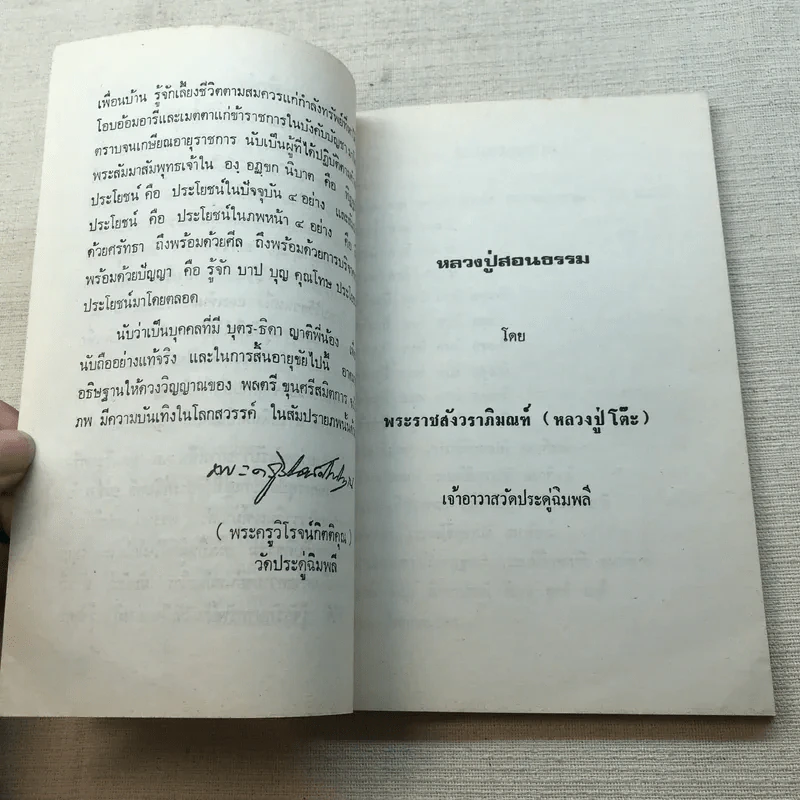 เพื่อนบ้าน รู้จักเลี้ยงชีวิตตามสมควรแก่กำลังทรัพย์ที่
โอบอ้อมอารีและเมตตาแก่ข้าราชการในบังคับบัญชา
ตราบจนเกษียณอายุราชการ นับเป็นผู้ที่ได้ปฏิบัติตาม
พระสัมมาสัมพุทธเจ้าใน องฺ อฏฺขก นิบาต คือ
ประโยชน์ คือ ประโยชน์ในปัจจุบัน ๔ อย่าง และ
ประโยชน์ คือ ประโยชน์ในภพหน้า ๔ อย่าง คือ
ด้วยศรัทธา ถึงพร้อมด้วยศีล ถึงพร้อมด้วยการบริจาค
พร้อมด้วยปัญญา คือ รู้จัก บาป บุญ คุณโทษ
ประโยชน์มาโดยตลอด
นับว่าเป็นบุคคลที่มี บุตร-ธิดา ญาติพี่น้อง
นับถืออย่างแท้จริง และในการสิ้นอายุขัยไปนี้
อธิษฐานให้ดวงวิญญาณของ พลตรี ขุนศรีสมิตการ
ภพ มีความบันเทิงในโลกสวรรค์ ในสัมปรายภพนั้น
( พระครูวิโรจน์กิตติคุณ )
วัดประดู่ฉิมพลี
หลวงปู่สอนธรรม
โดย
พระราชสังวราภิมณฑ์ ( หลวงปู่ โต๊ะ )
เจ้าอาวาสวัดประดู่ฉิมพลี